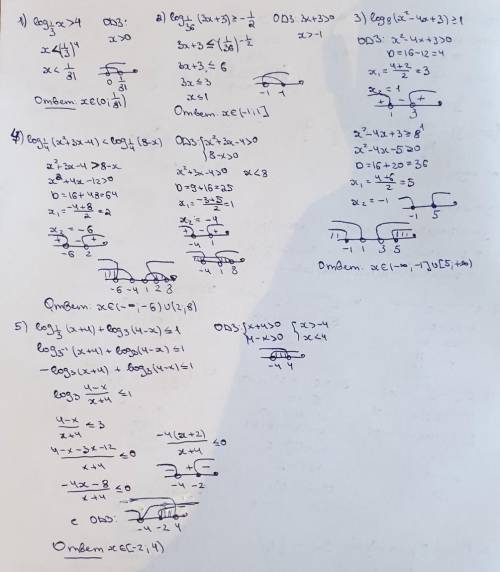 1) log_{1/3} x > 4 ОДЗ:
x < (1/3)^4 x > 0
x < 1/81
0 1/81
Ответ: x∈(0; 1/81)
2) log_{1/36} (3x+3) ≥ -1/2 ОДЗ: 3x+3>0
3x+3 ≤ (1/36)^{-1/2} x>-1
3x+3 ≤ 6
3x ≤ 3
x ≤ 1
-1 1
Ответ: x∈(-1;1]
3) log_8 (x²-4x+3) ≥ 1
ОДЗ: x²-4x+3>0
D=16-12=4
x₁=(4+2)/2=3
x₂=1
+ - +
1 3
x²-4x+3 ≥ 8¹
x²-4x-5 ≥ 0
D=16+20=36
x₁=(4+6)/2=5
x₂=-1
-1 5
-1 1 3 5
Ответ: x∈(-∞,-1]∪[5;+∞)
4) log_{1/4} (x²+3x-4) < log_{1/4} (8-x) ОДЗ: { x²+3x-4>0
8-x>0
x²+3x-4 > 8-x x²+3x-4>0 x<8
x²+4x-12>0 D=9+16=25
D=16+48=64 x₁=(-3+5)/2=1
x₁=(-4+8)/2=2 x₂=-4
x₂=-6 + - +
+ - + -4 1
-6 2 -4 1 8
-6 -4 1 2 8
Ответ: x∈(-∞,-6)∪(2;8)
5) log_{1/3} (x+4) + log_3 (4-x) ≤ 1 ОДЗ: { x+4>0 { x>-4
4-x>0 x<4
log_{3^{-1}} (x+4) + log_3 (4-x) ≤ 1
-4 4
-log_3 (x+4) + log_3 (4-x) ≤ 1
log_3 (4-x)/(x+4) ≤ 1
(4-x)/(x+4) ≤ 3
(4-x-3x-12)/(x+4) ≤ 0 -4(x+2)/(x+4) ≤ 0
(-4x-8)/(x+4) ≤ 0 - + -
-4 -2
с ОДЗ:
-4 -2 4
Ответ x∈[-2;4)